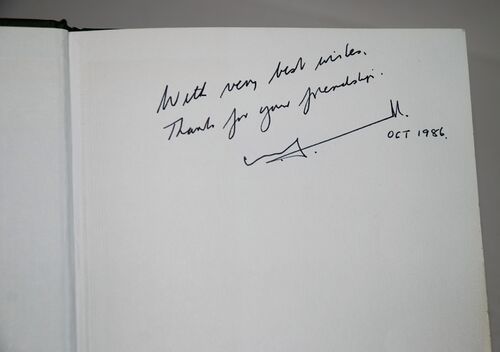 With very best wishes.
Thanks for your friendship.
OCT 1986.